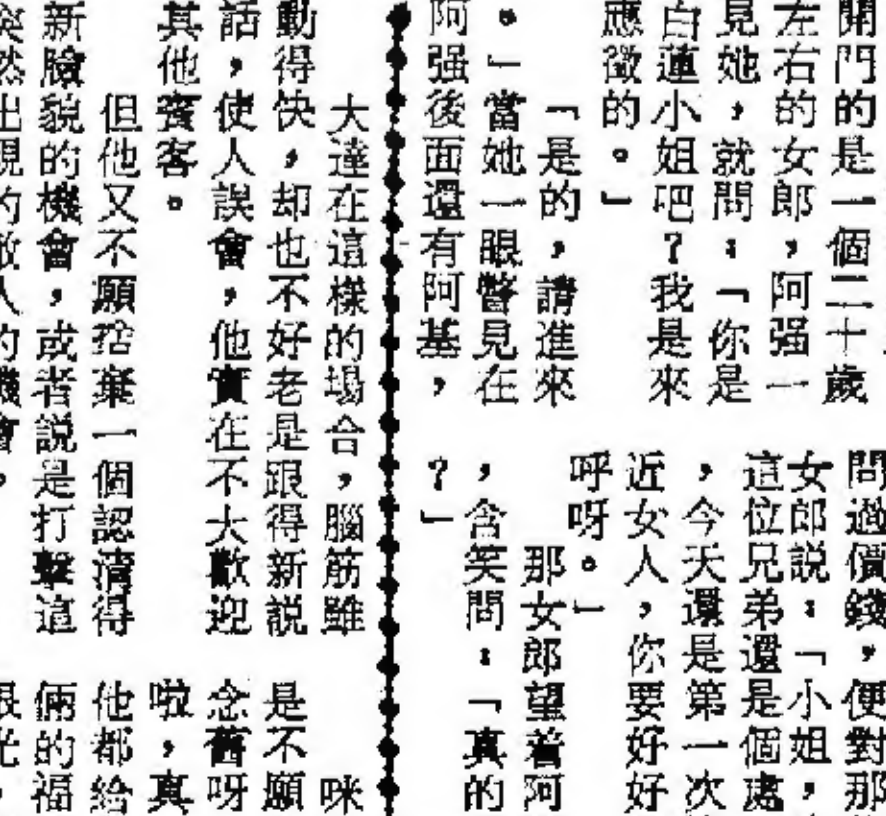 開門的是一個二十歲
左右的女郎,阿强一
見她,就問:「你是
白蓮小姐吧?我是來
應徵的。」
「是的,請進來
。」當她一眼瞥見在
阿强後面還有阿基,
問過價錢,便對那
女郎説:「小姐,
這位兄弟還是個處
,今天還是第一次
近女人,你要好好
呼呀。」
那女郎望着阿
,含笑問:「真的
?」
大達在這樣的場合,腦筋雖
動得快,却也不好老是跟得新説
話,使人誤會,他實在不大歡迎
其他賓客。
但他又不願捨棄一個認清得
新臉貌的機會,或者説是打擊這
突然出現的敵人的機會,
咪
是不願
念舊呀
啦,真
他都給
倆的福
眼光,